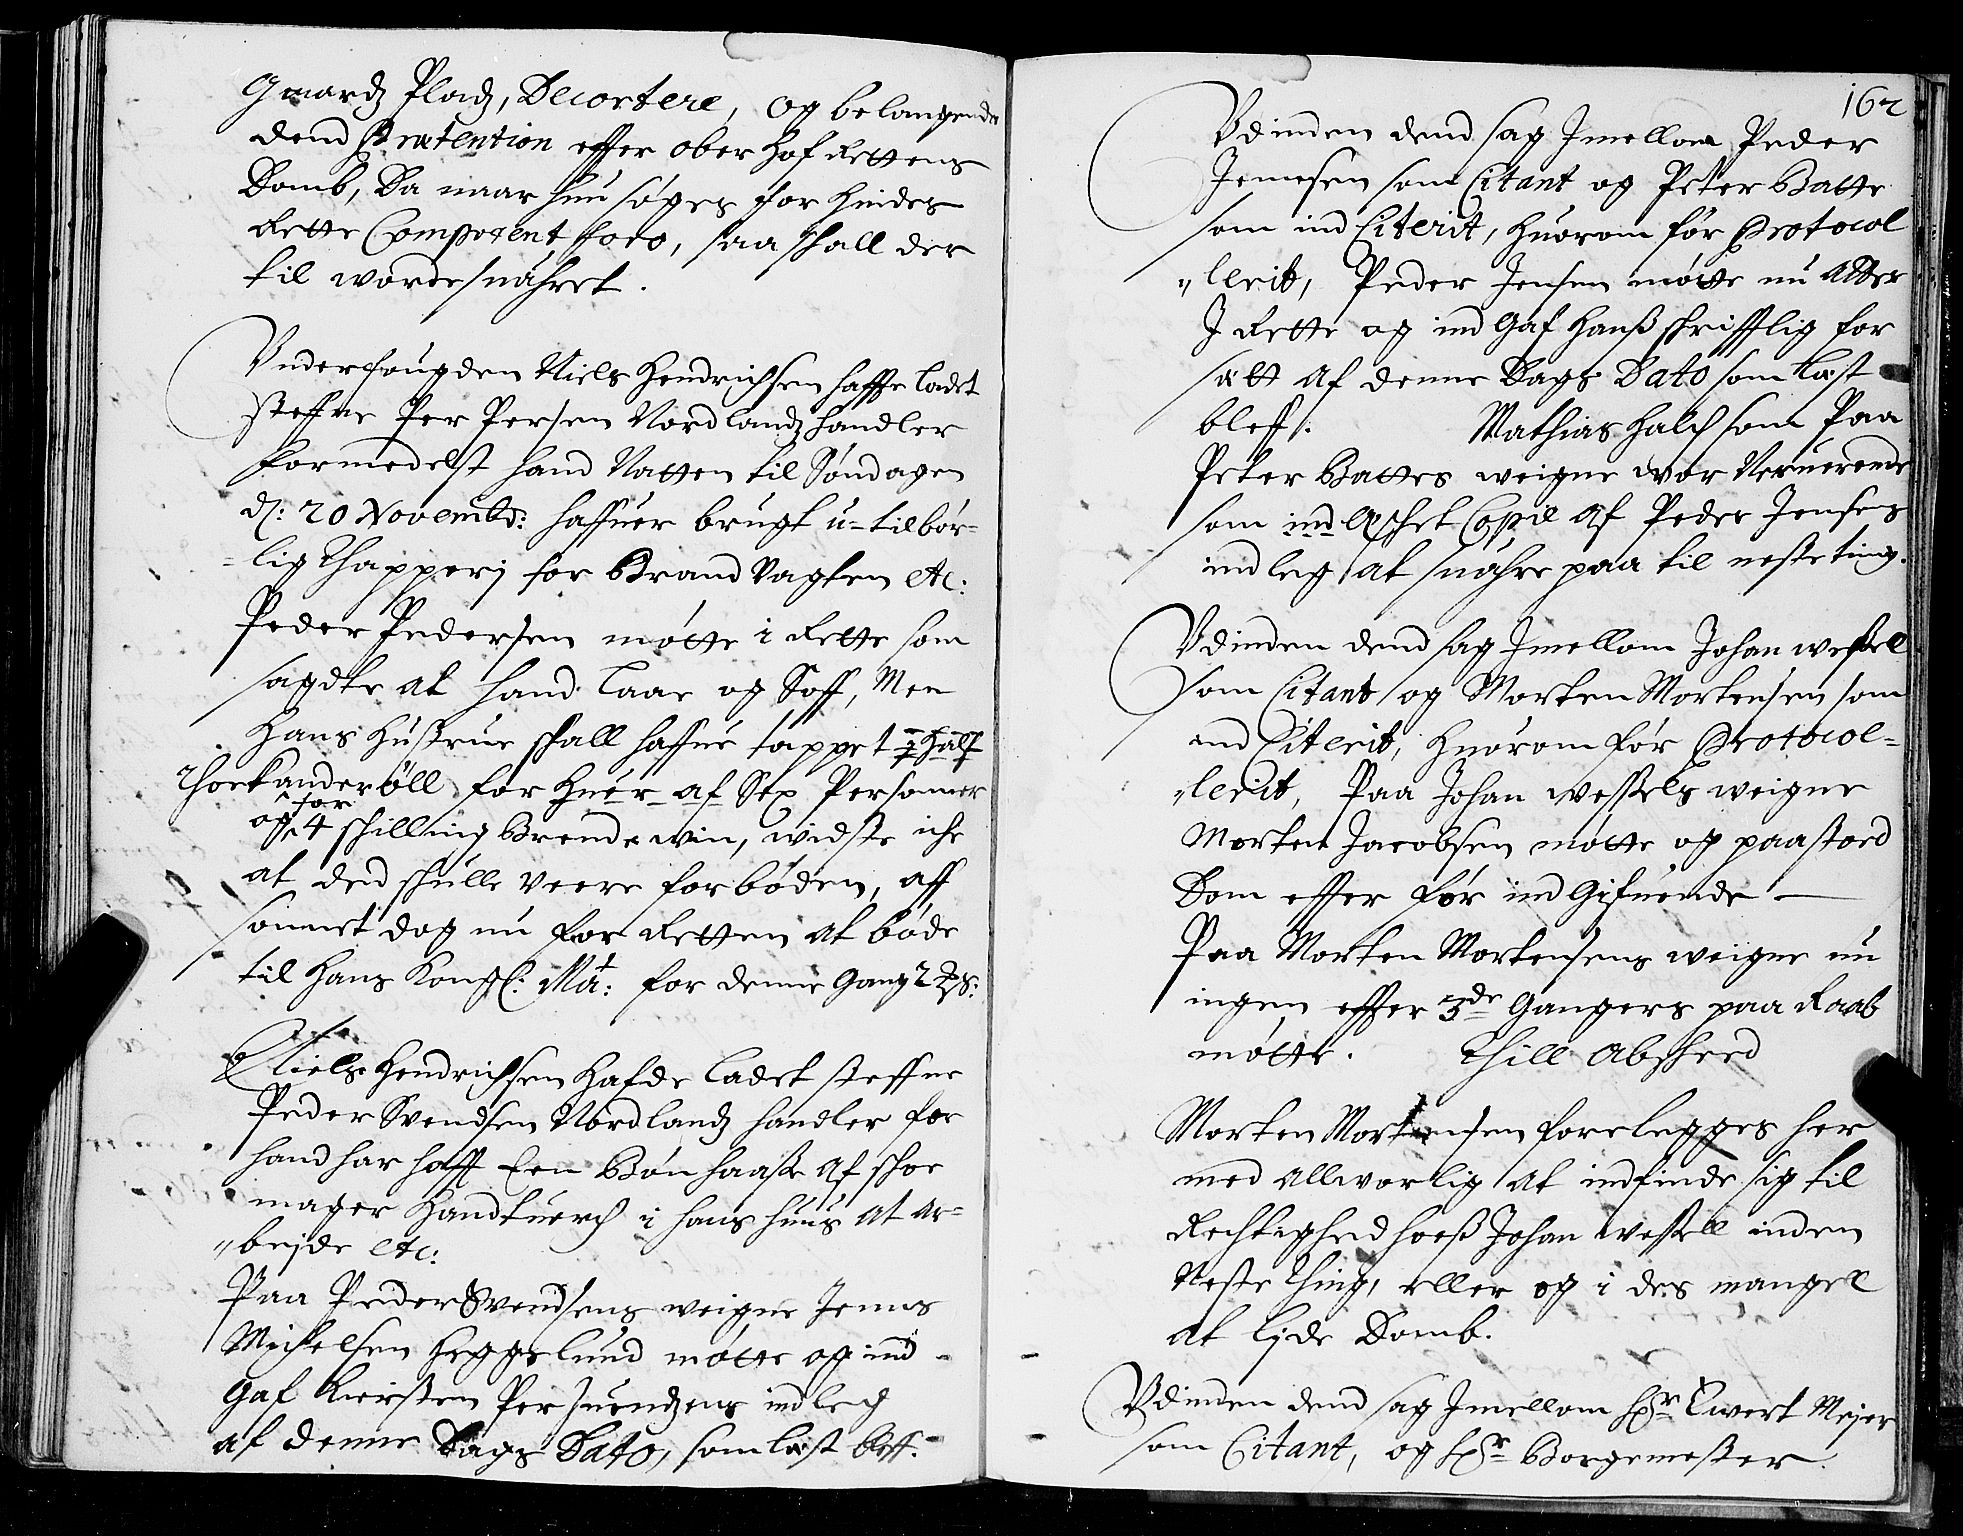 Gaardz Pladz, Decortere, og belangende
dend Prætention effter ober Hof Rettens
Domb, Da naar hun søges for hindes
Rette Competent foro, saa schall der
til worde suahret.
Underfougden Niels Hendrichsen haffe ladet
steffne Per Persen Nordlandz handler
formedelst hand Natten til Søndagen
d: 20 Novembr: haffuer brugt u-tilbør-
-lig Thapperj for Brand Vagten etc:
Peder Pedersen møtte i Rette som
sagdte at hand laae og Soff, Men
Hans Hustrue schall haffue tappet
öll for Huer af Sex Personner
og for 4 schilling Brendewin, widste iche
at ded schulle veere forbøden, aff
sonnet dog nu for Retten at bøde
til Hans Kongl: Ma^t: for denne Gang 2 Rd:
Niels Hendrichsen Hafde ladet steffne
Peder Svendsen Nordlandz handler for
hand har hafft Een Bønhaasse af schoe
mager Handtuerch i hans huus at ar=
"bejde etc:
Paa Peder Svendsens weigne Jenns
Michelsen Heggelund møtte og ind-
Gaf Kiersten Per Suendzens indleg
af denne Dags Dato, som læst bleff.
162
Udinden dend sag Imellom Peder
Jennsen som Citant og Peter Batte
som ind Citerit, Huorom før Protocol
"lerit, Peder Jensen møtte nu Atter
I Rette og ind Gaf Hanß schrifftlig for
sætt af denne Dags Dato som Læst
bleff. Mathias Halch som Paa
Peter Battes weigne war Neruerende
som ind Eschet Copie af Peder Jenses
indleg at suahre paa til neste ting.
Udinden dend sag Imellom Johan wessel
som Citant og Morten Mortensen som
ind Citerit, Huorom før Protocol=
"lerit, Paa Johan Wessels weigne
Morten Jacobsen møtte og paastoed
Dom effter før ind Gifuende —
Paa Morten Mortensens weigne nu
ingen effter 3de Gangers paa Raab
møtte. Thill Abscheed
Morten Mortensen forelegges her
med allworlig at indfinde sig til
Rechtighed hoeß Johan Wessell inden
Neste Thing, eller og i des mangel
at lide Domb.
Udinden dend sag Imellom Hr Ewert Mejer
som Citant, og Hr Borgemester